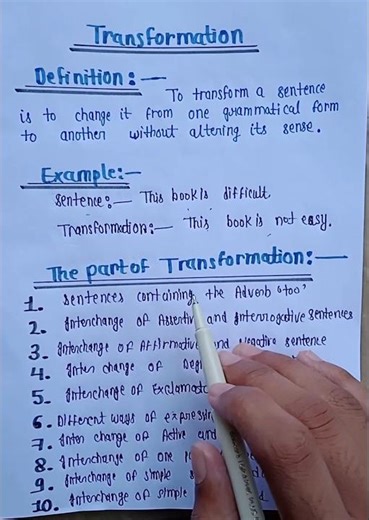 Transformation
Definition:—
To transform a sentence
is to change it from one grammatical form
to another without altering its sense.
Example:—
Sentence:— This book is difficult.
Transformation:— This book is not easy.
The part of Transformation:—
1. Sentences containing the Adverb 'too'
2. Interchange of Assertive and Interrogative sentences
3. Interchange of Affirmative and Negative sentence
4. Inter change of
5. Interchange of
6. Different ways of
7. Inter change of Active and
8. Interchange of one
9. Interchange of simple
10. Interchange of simple